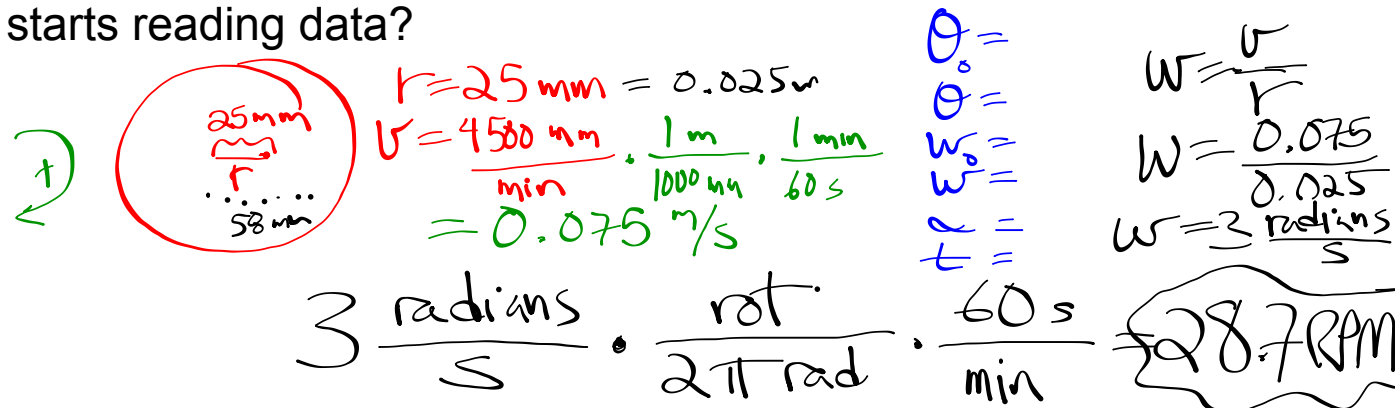 starts reading data?
25mm
r
58 mm
+
r = 25 mm = 0.025m
v = 4500 mm/min · 1 m/1000 mm · 1 min/60 s
= 0.075 m/s
θ₀ =
θ =
ω₀ =
ω =
α =
t =
ω = v/r
ω = 0.075/0.025
ω = 3 radians/s
3 radians/s · rot/2π rad · 60 s/min = 28.7 RPM